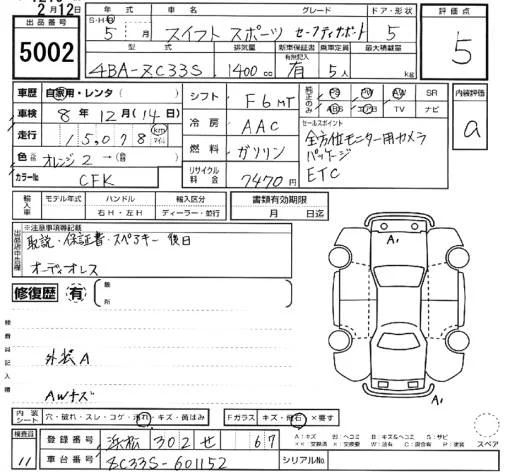 2月12日
出品番号
5002
年式
車名
グレード
ドア・形状
S・H・R
5 月
スイフト スポーツ セーフティサポート
5
型式
排気量
新車保証書
有無記入
乗車定員
最大積載量
4BA-ZC33S
1400cc
有
5人
kg
評価点
5
車歴
自家用・レンタ( )
車検
8年12月(14日)
走行
15,078 km マイル
色
オレンジ2→
カラーNo
CFK
シフト
F6MT
冷房
AAC
燃料
ガソリン
リサイクル料金
7470円
純正のみ
PS PW AW SR
ABS エアB TV ナビ
セールスポイント
全方位モニター用カメラ
パッケージ
ETC
内装評価
a
輸入車
モデル年式
ハンドル
輸入区分
年
右H・左H
ディーラー・並行
書類有効期限
月 日迄
※注意事項等記載
出品店申告欄
取説・保証書・スペアキー 後日
オーディオレス
修復歴
有
箇所
検査員記入欄
外装A
AWキズ
A1
A1
内装シート
穴・破れ・スレ・コゲ・汚れ・キズ・黄ばみ
Fガラス
キズ・飛石・×要す
検査員
11
登録番号
浜松 302 せ 67
車台番号
ZC33S-601152
シリアルNo
スペア